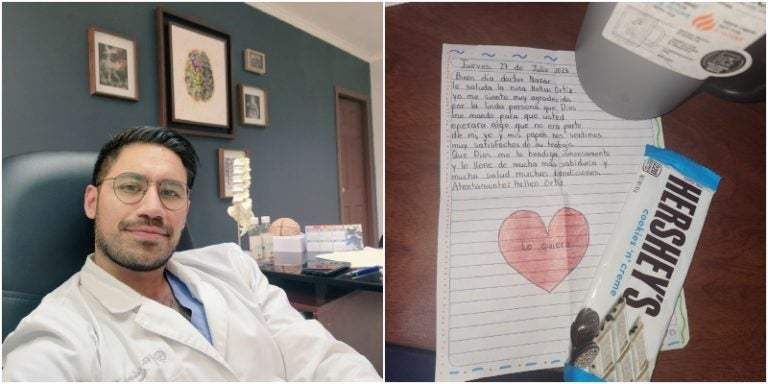 Jueves 27 de Julio 2023
Buen dia doctor Nazar
le saluda la niña Hellen Ortiz
yo me siento muy agradecida
por la linda persona que Dios
me mando para que usted
operara algo que no era parte
de mi, yo y mis papás nos sentimos
muy satisfechos de su trabajo
Que Dios me lo bendiga inmensamente
y lo llene de mucha más sabiduria y
mucha salud muchas bendiciones.
Atentamente: Hellen Ortiz
Lo quiero
HERSHEY'S
cookies 'n' creme